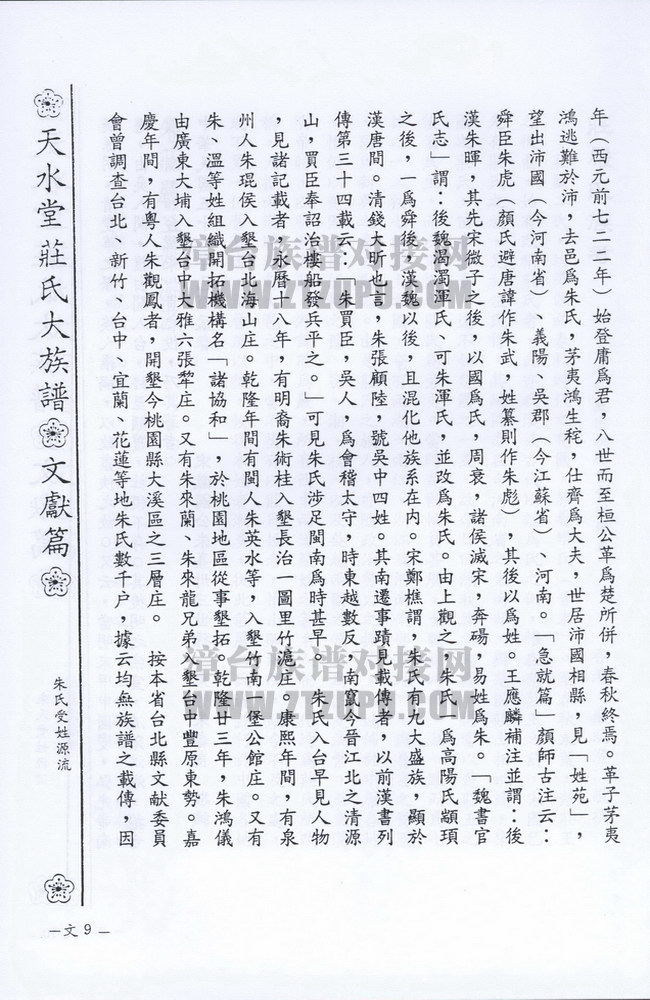 年（西元前七二二年）始登庸爲君，八世而至桓公革爲楚所併，春秋終焉。革子茅夷
鴻逃難於沛，去邑爲朱氏，茅夷鴻生秺，仕齊爲大夫，世居沛國相縣，見「姓苑」，
望出沛國（今河南省）、義陽、吳郡（今江蘇省）、河南。「急就篇」顏師古注云：
舜臣朱虎（顏氏避唐諱作朱武，姓纂則作朱彪），其後以爲姓。王應麟補注並謂：後
漢朱暉，其先宋微子之後，以國爲氏，周衰，諸侯滅宋，奔碭，易姓爲朱。「魏書官
氏志」謂：後魏渴濁渾氏、可朱渾氏，並改爲朱氏。由上觀之，朱氏一爲高陽氏顓頊
之後，一爲舜後，漢魏以後，且混化他族系在內。宋鄭樵謂，朱氏有九大盛族，顯於
漢唐間。清錢大昕也言，朱張顧陸，號吳中四姓。其南遷事蹟見載傳者，以前漢書列
傳第三十四載云：「朱買臣，吳人，爲會稽太守，時東越數反，南竄今晉江北之清源
山，買臣奉詔治樓船發兵平之。」可見朱氏涉足閩南爲時甚早。 朱氏入台早見人物
，見諸記載者，永曆十八年，有明裔朱術桂入墾長治一圖里竹滬庄。康熙年間，有泉
州人朱琨侯入墾台北海山庄。乾隆年間有閩人朱英水等，入墾竹南一堡公館庄。又有
朱、溫等姓組織開拓機構名「諸協和」，於桃園地區從事墾拓。乾隆廿三年，朱鴻儀
由廣東大埔入墾台中大雅六張犂庄。又有朱來蘭、朱來龍兄弟入墾台中豐原東勢。嘉
慶年間，有粵人朱觀鳳者，開墾今桃園縣大溪區之三層庄。 按本省台北縣文獻委員
會曾調查台北、新竹、台中、宜蘭、花蓮等地朱氏數千户，據云均無族譜之載傳，因
天水堂莊氏大族譜 文獻篇
朱氏受姓源流
—文 9—
漳台族谱对接网
WWW.ZTZUPU.COM
漳台族谱对接网
WWW.ZTZUPU.COM